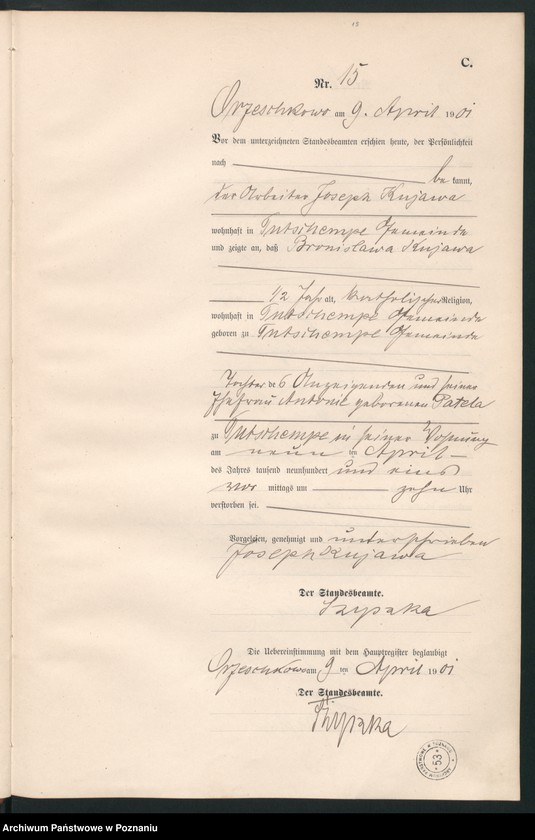 15
C.
Nr. 15
Orzeschkowo am 9. April 1901
Vor dem unterzeichneten Standesbeamten erschien heute, der Persönlichkeit
nach be kannt,
der Arbeiter Joseph Kujawa
wohnhaft in Tutschempe Gemeinde
und zeigte an, daß Bronislawa Kujawa
1/2 Jahr alt, katholischer Religion,
wohnhaft in Tutschempe Gemeinde
geboren zu Tutschempe Gemeinde
Tochter des Anzeigenden und seiner
Ehefrau Antonie geborenen Patela
zu Tutschempe in seiner Wohnung
am neun ten April
des Jahres tausend neunhundert und eins
vor mittags um zehn Uhr
verstorben sei.
Vorgelesen, genehmigt und unterschrieben
Joseph Kujawa
Der Standesbeamte.
Die Uebereinstimmung mit dem Hauptregister beglaubigt
Orzeschkowo am 9 ten April 1901
Der Standesbeamte.
53
Archiwum Państwowe w Poznaniu